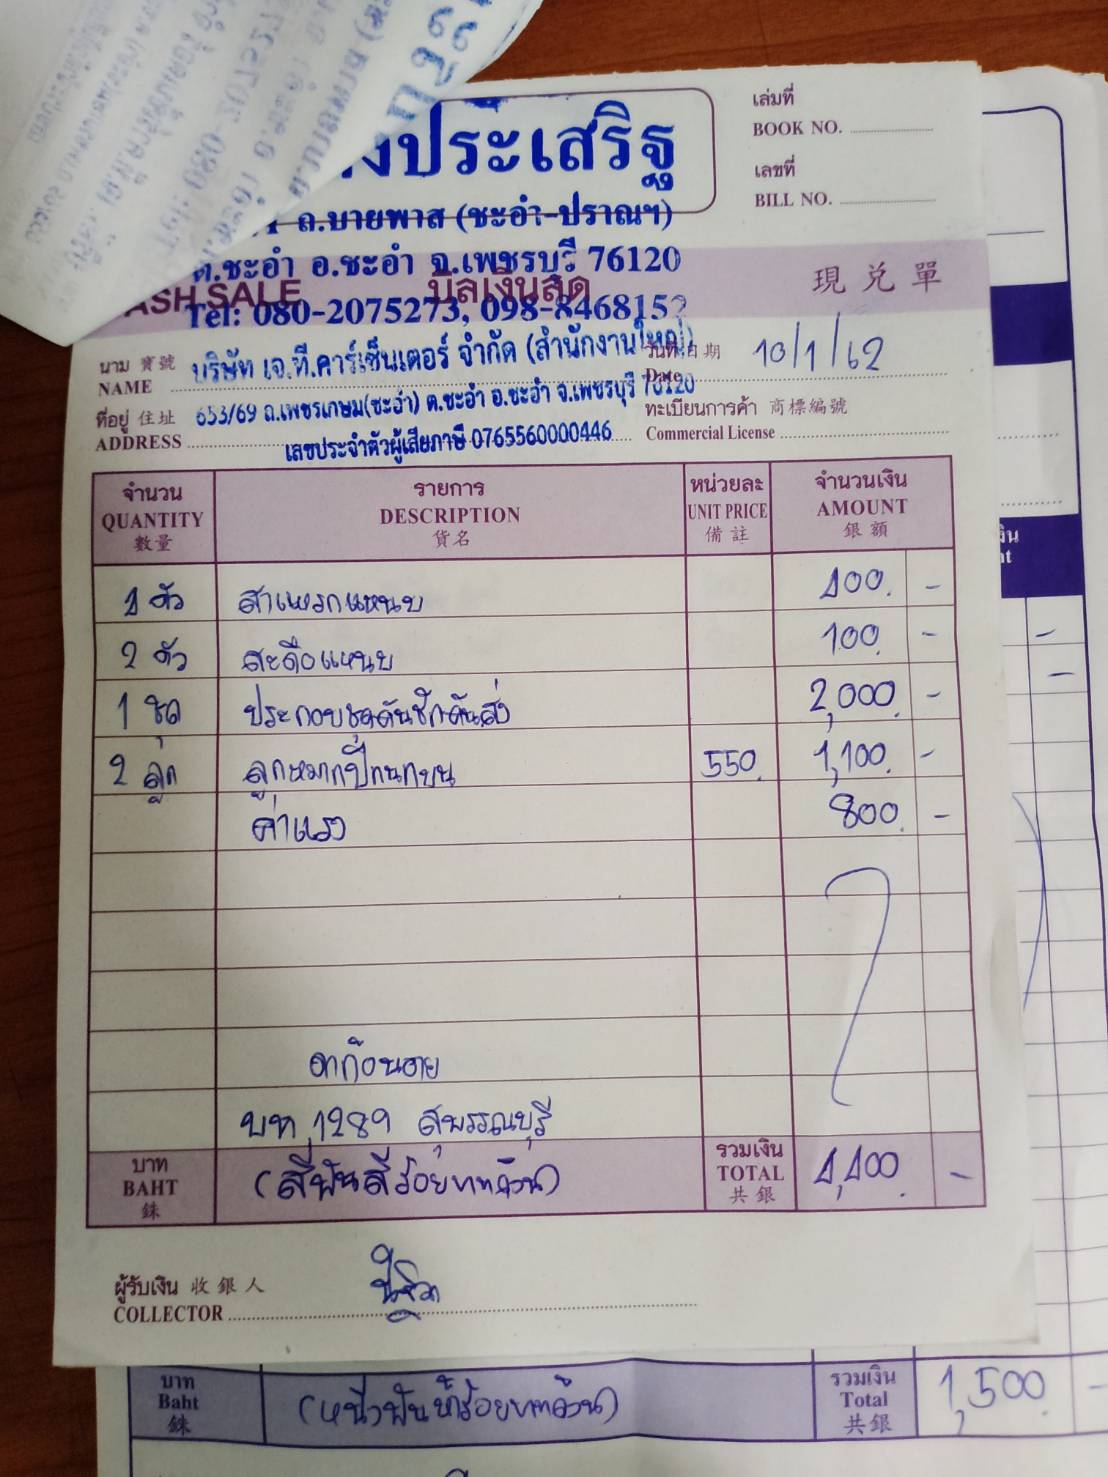 งประเสริฐ
ถ.บายพาส (ชะอำ-ปราณฯ)
ต.ชะอำ อ.ชะอำ จ.เพชรบุรี 76120
Tel: 080-2075273, 098-8468152
เล่มที่
BOOK NO.
เลขที่
BILL NO.
ASH SALE บิลเงินสด 現兌單
นาม 寶號
NAME บริษัท เจ.ที.คาร์เซ็นเตอร์ จำกัด (สำนักงานใหญ่)
วันที่ 日期 10/1/62
Date
ที่อยู่ 住址
ADDRESS 653/69 ถ.เพชรเกษม(ชะอำ) ต.ชะอำ อ.ชะอำ จ.เพชรบุรี 76120
เลขประจำตัวผู้เสียภาษี 0765560000446
ทะเบียนการค้า 商標編號
Commercial License
จำนวน รายการ หน่วยละ จำนวนเงิน
QUANTITY DESCRIPTION UNIT PRICE AMOUNT
數量 貨名 備註 銀額
1 ตัว สาแหรกแหนบ 400 -
2 ตัว สะดือแหนบ 100 -
1 ชุด ประกอบชุดคันชักคันส่ง 2,000 -
2 ลูก ลูกหมากปีกนกบน 550 1,100 -
ค่าแรง 800 -
บท 1289 สุพรรณบุรี
บาท
BAHT
銖
(สี่พันสี่ร้อยบาทถ้วน)
รวมเงิน
TOTAL
共銀
4,400 -
ผู้รับเงิน 收銀人
COLLECTOR
บาท
Baht
銖
(หนึ่งพันห้าร้อยบาทถ้วน)
รวมเงิน
Total
共銀
1,500 -